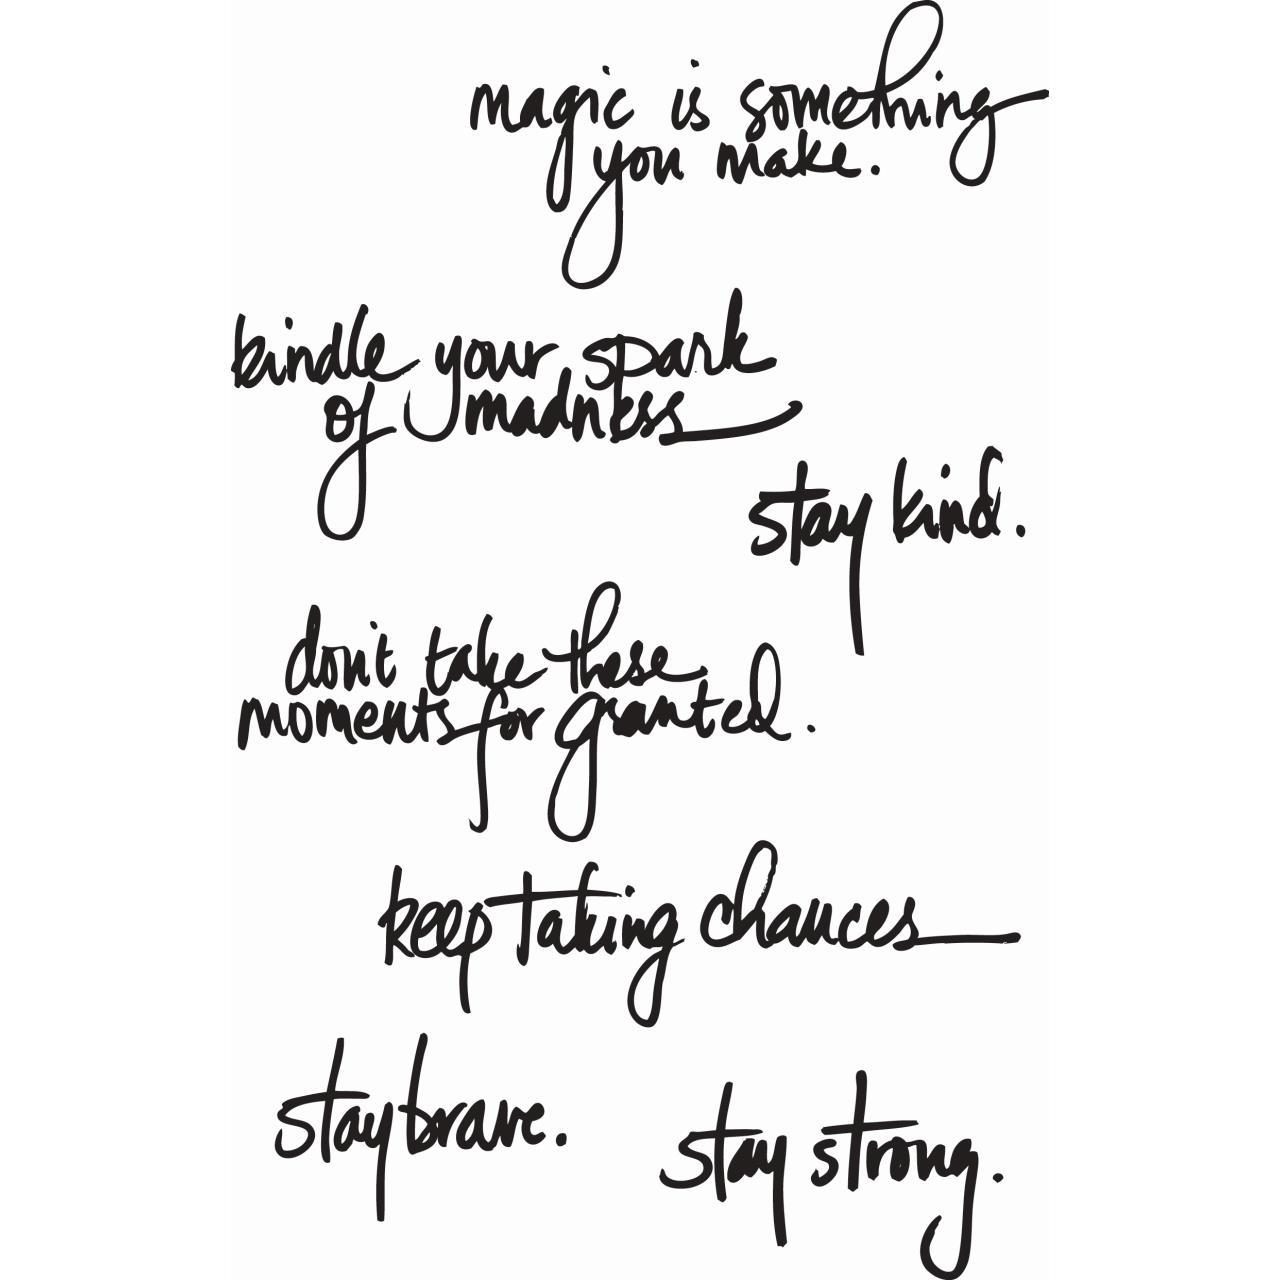 magic is something
you make.
kindle your spark
of madness
stay kind.
don't take these
moments for granted.
keep taking chances
stay brave.
stay strong.